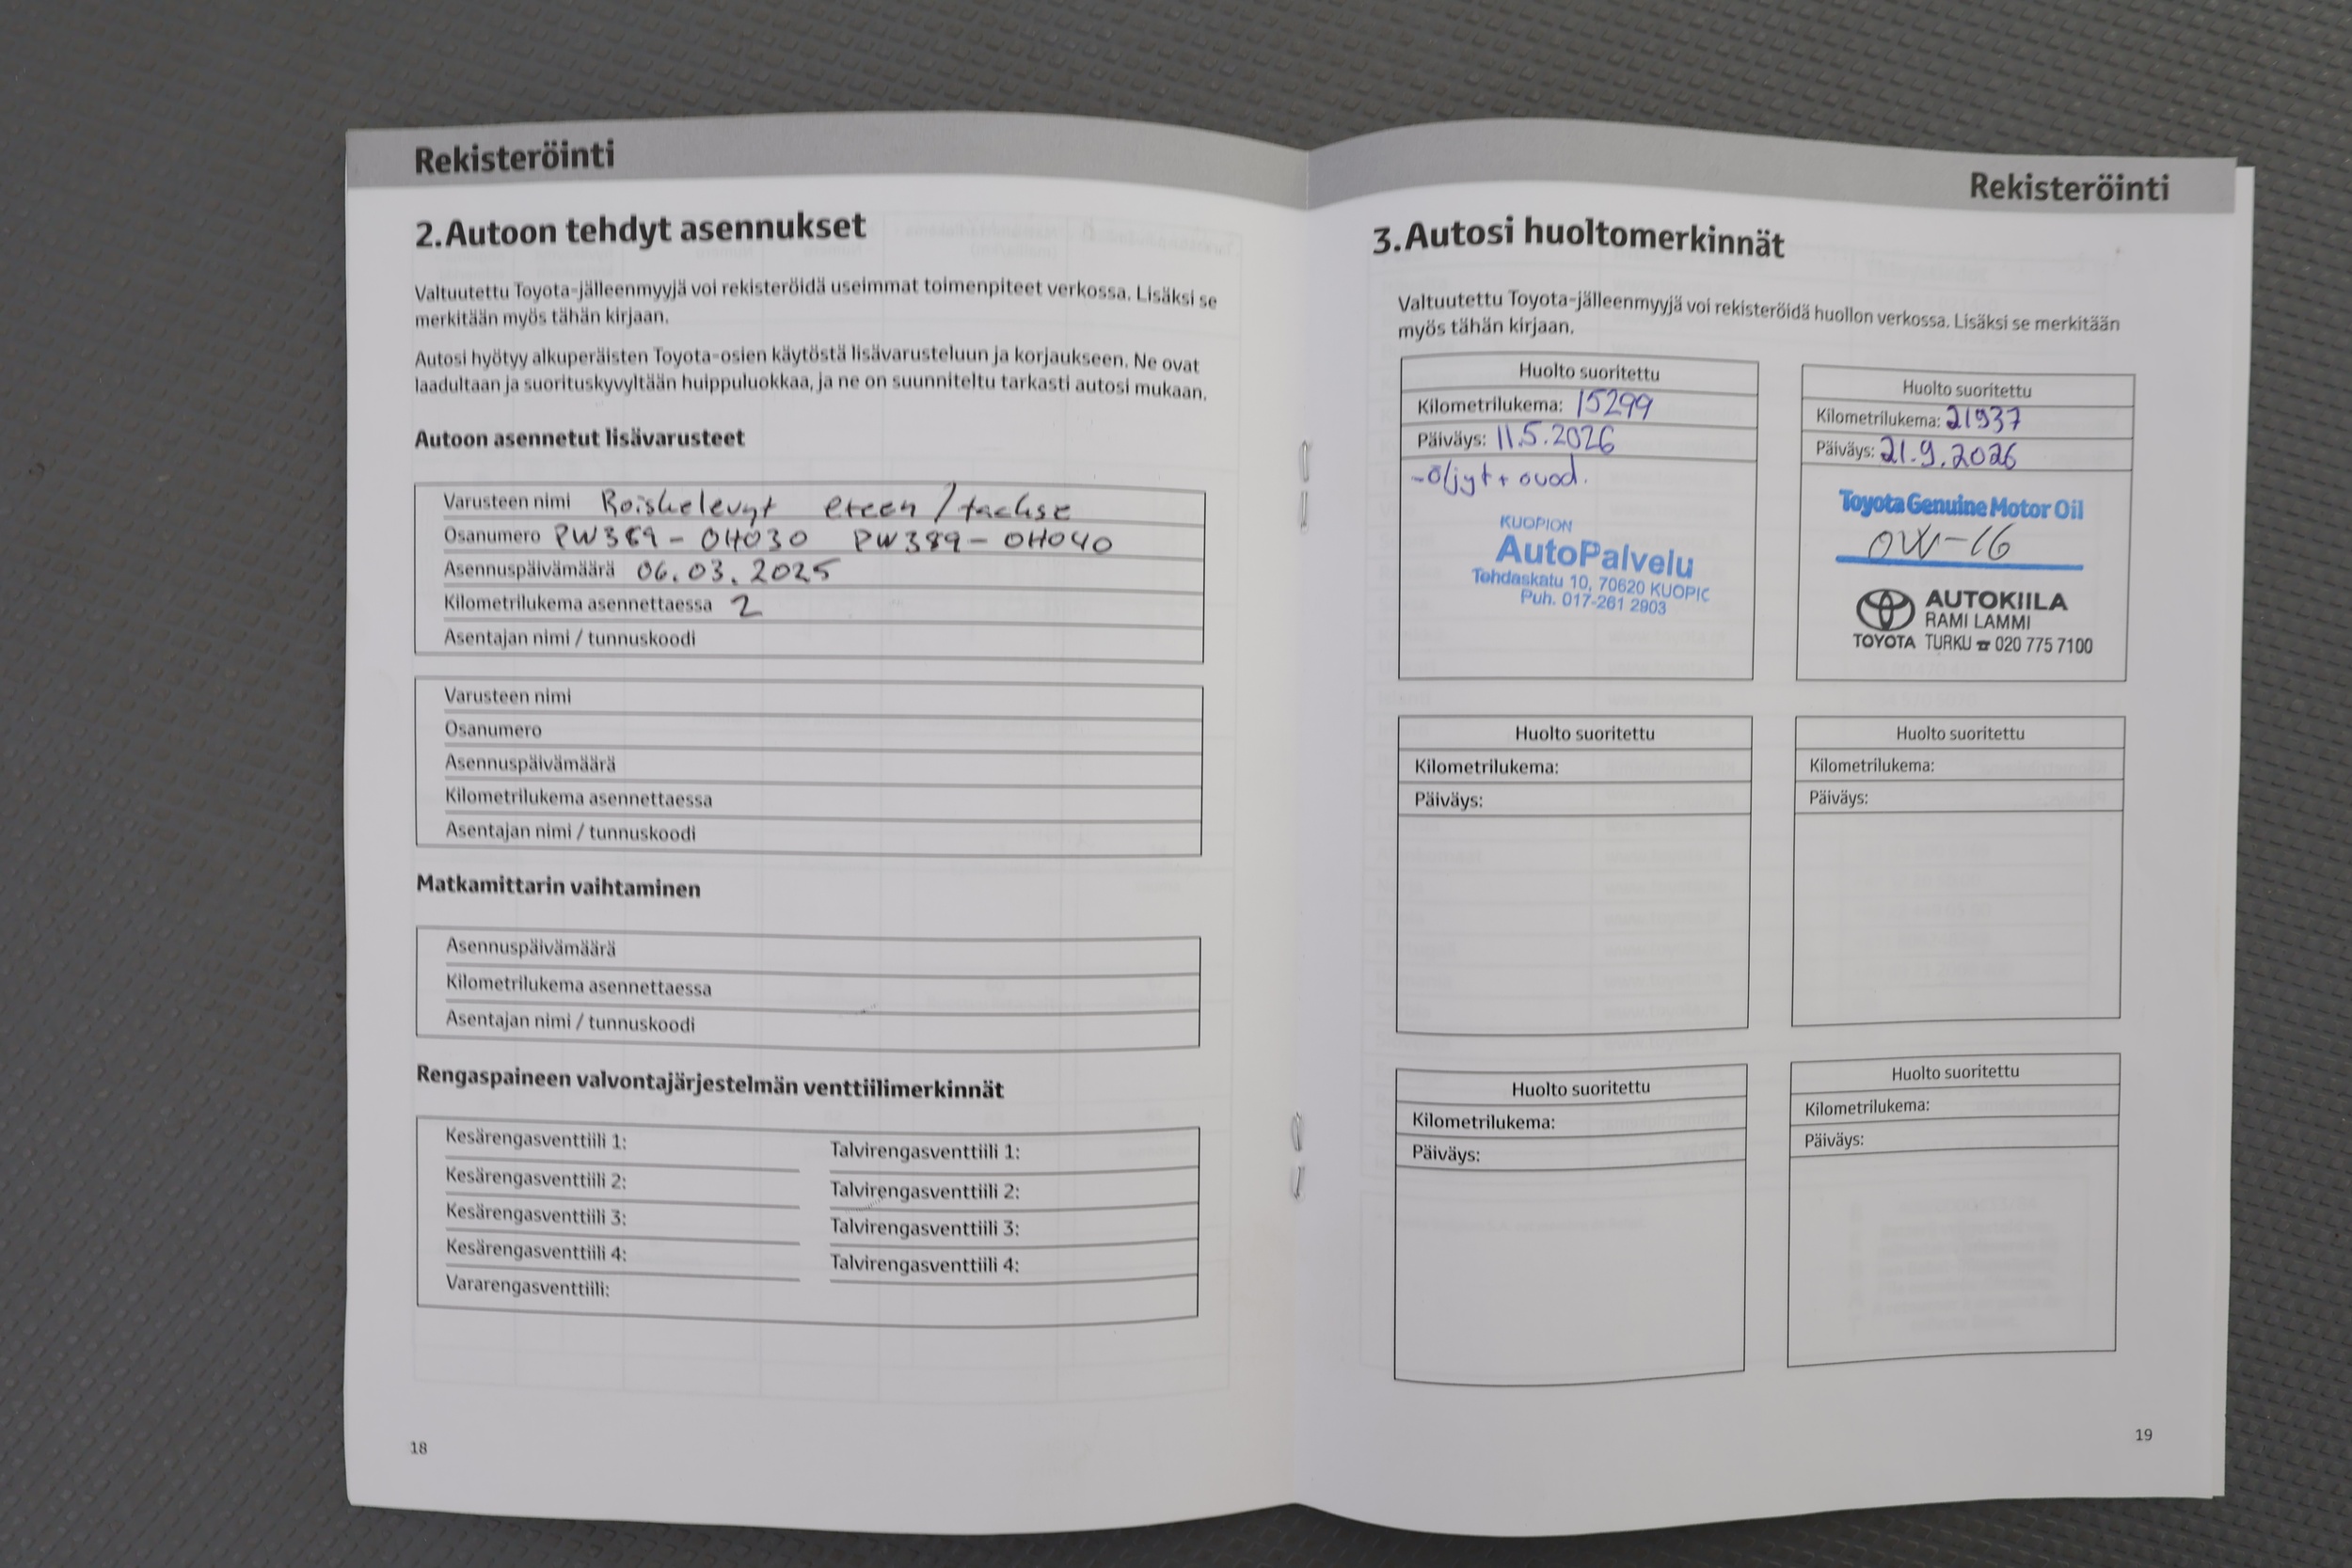 Rekisteröinti
2. Autoon tehdyt asennukset
Valtuutettu Toyota-jälleenmyyjä voi rekisteröidä useimmat toimenpiteet verkossa. Lisäksi se
merkitään myös tähän kirjaan.
Autosi hyötyy alkuperäisten Toyota-osien käytöstä lisävarusteluun ja korjaukseen. Ne ovat
laadultaan ja suorituskyvyltään huippuluokkaa, ja ne on suunniteltu tarkasti autosi mukaan.
Autoon asennetut lisävarusteet
Varusteen nimi Roiskelevyt eteen / tachse
Osanumero PW389-0H030 PW389-0H040
Asennuspäivämäärä 06.03.2025
Kilometrilukema asennettaessa 2
Asentajan nimi / tunnuskoodi
Varusteen nimi
Osanumero
Asennuspäivämäärä
Kilometrilukema asennettaessa
Asentajan nimi / tunnuskoodi
Matkamittarin vaihtaminen
Asennuspäivämäärä
Kilometrilukema asennettaessa
Asentajan nimi / tunnuskoodi
Rengaspaineen valvontajärjestelmän venttiilimerkinnät
Kesärengasventtiili 1:
Kesärengasventtiili 2:
Kesärengasventtiili 3:
Kesärengasventtiili 4:
Vararengasventtiili:
Talvirengasventtiili 1:
Talvirengasventtiili 2:
Talvirengasventtiili 3:
Talvirengasventtiili 4:
18
Rekisteröinti
3. Autosi huoltomerkinnät
Valtuutettu Toyota-jälleenmyyjä voi rekisteröidä huollon verkossa. Lisäksi se merkitään
myös tähän kirjaan.
Huolto suoritettu
Kilometrilukema: 15299
Päiväys: 11.5.2026
-öljyt + suod.
KUOPION
AutoPalvelu
Tehdaskatu 10, 70620 KUOPIO
Puh. 017-261 2903
Huolto suoritettu
Kilometrilukema: 21937
Päiväys: 21.9.2026
Toyota Genuine Motor Oil
0W-16
AUTOKIILA
RAMI LAMMI
TOYOTA TURKU ☎ 020 775 7100
Huolto suoritettu
Kilometrilukema:
Päiväys:
Huolto suoritettu
Kilometrilukema:
Päiväys:
Huolto suoritettu
Kilometrilukema:
Päiväys:
Huolto suoritettu
Kilometrilukema:
Päiväys:
19